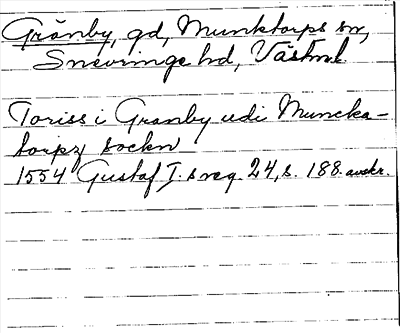 Gränby, gd, Munktorps sn,
Snevringe hd, Västml
Toriss i Granby udi Muncka-
torpz sockn
1554 Gustaf I:s reg. 24, s. 188. avskr.